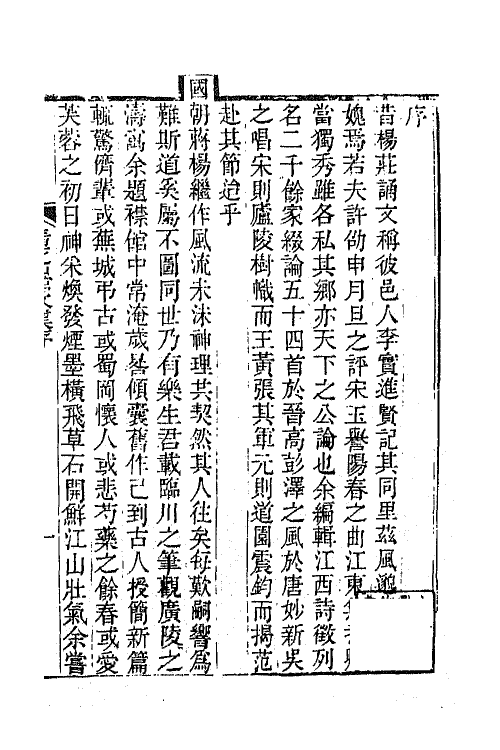 序
昔楊莊誦文稱彼邑人李實進賢記其同里茲風邈
媿焉若夫許劭申月旦之評宋玉譽陽春之曲江東
當獨秀雖各私其鄉亦天下之公論也余編輯江西詩徵列
名二千餘家綴論五十四首於晉高彭澤之風於唐妙新吳
之唱宋則廬陵樹幟而王黃張其軍元則道園震鈞而揭范
赴其節迨乎
國朝蔣楊繼作風流未沬神理共契然其人往矣每歎嗣響爲
難斯道奚屬不圖同世乃有樂生君載臨川之筆觀廣陵之
濤寓余題襟館中常淹歲晷傾囊舊作已到古人授簡新篇
輒驚儕輩或蕪城弔古或蜀岡懷人或悲芍藥之餘春或愛
芙蓉之初日神采煥發煙墨橫飛草石開鮮江山壯氣余嘗
序
一